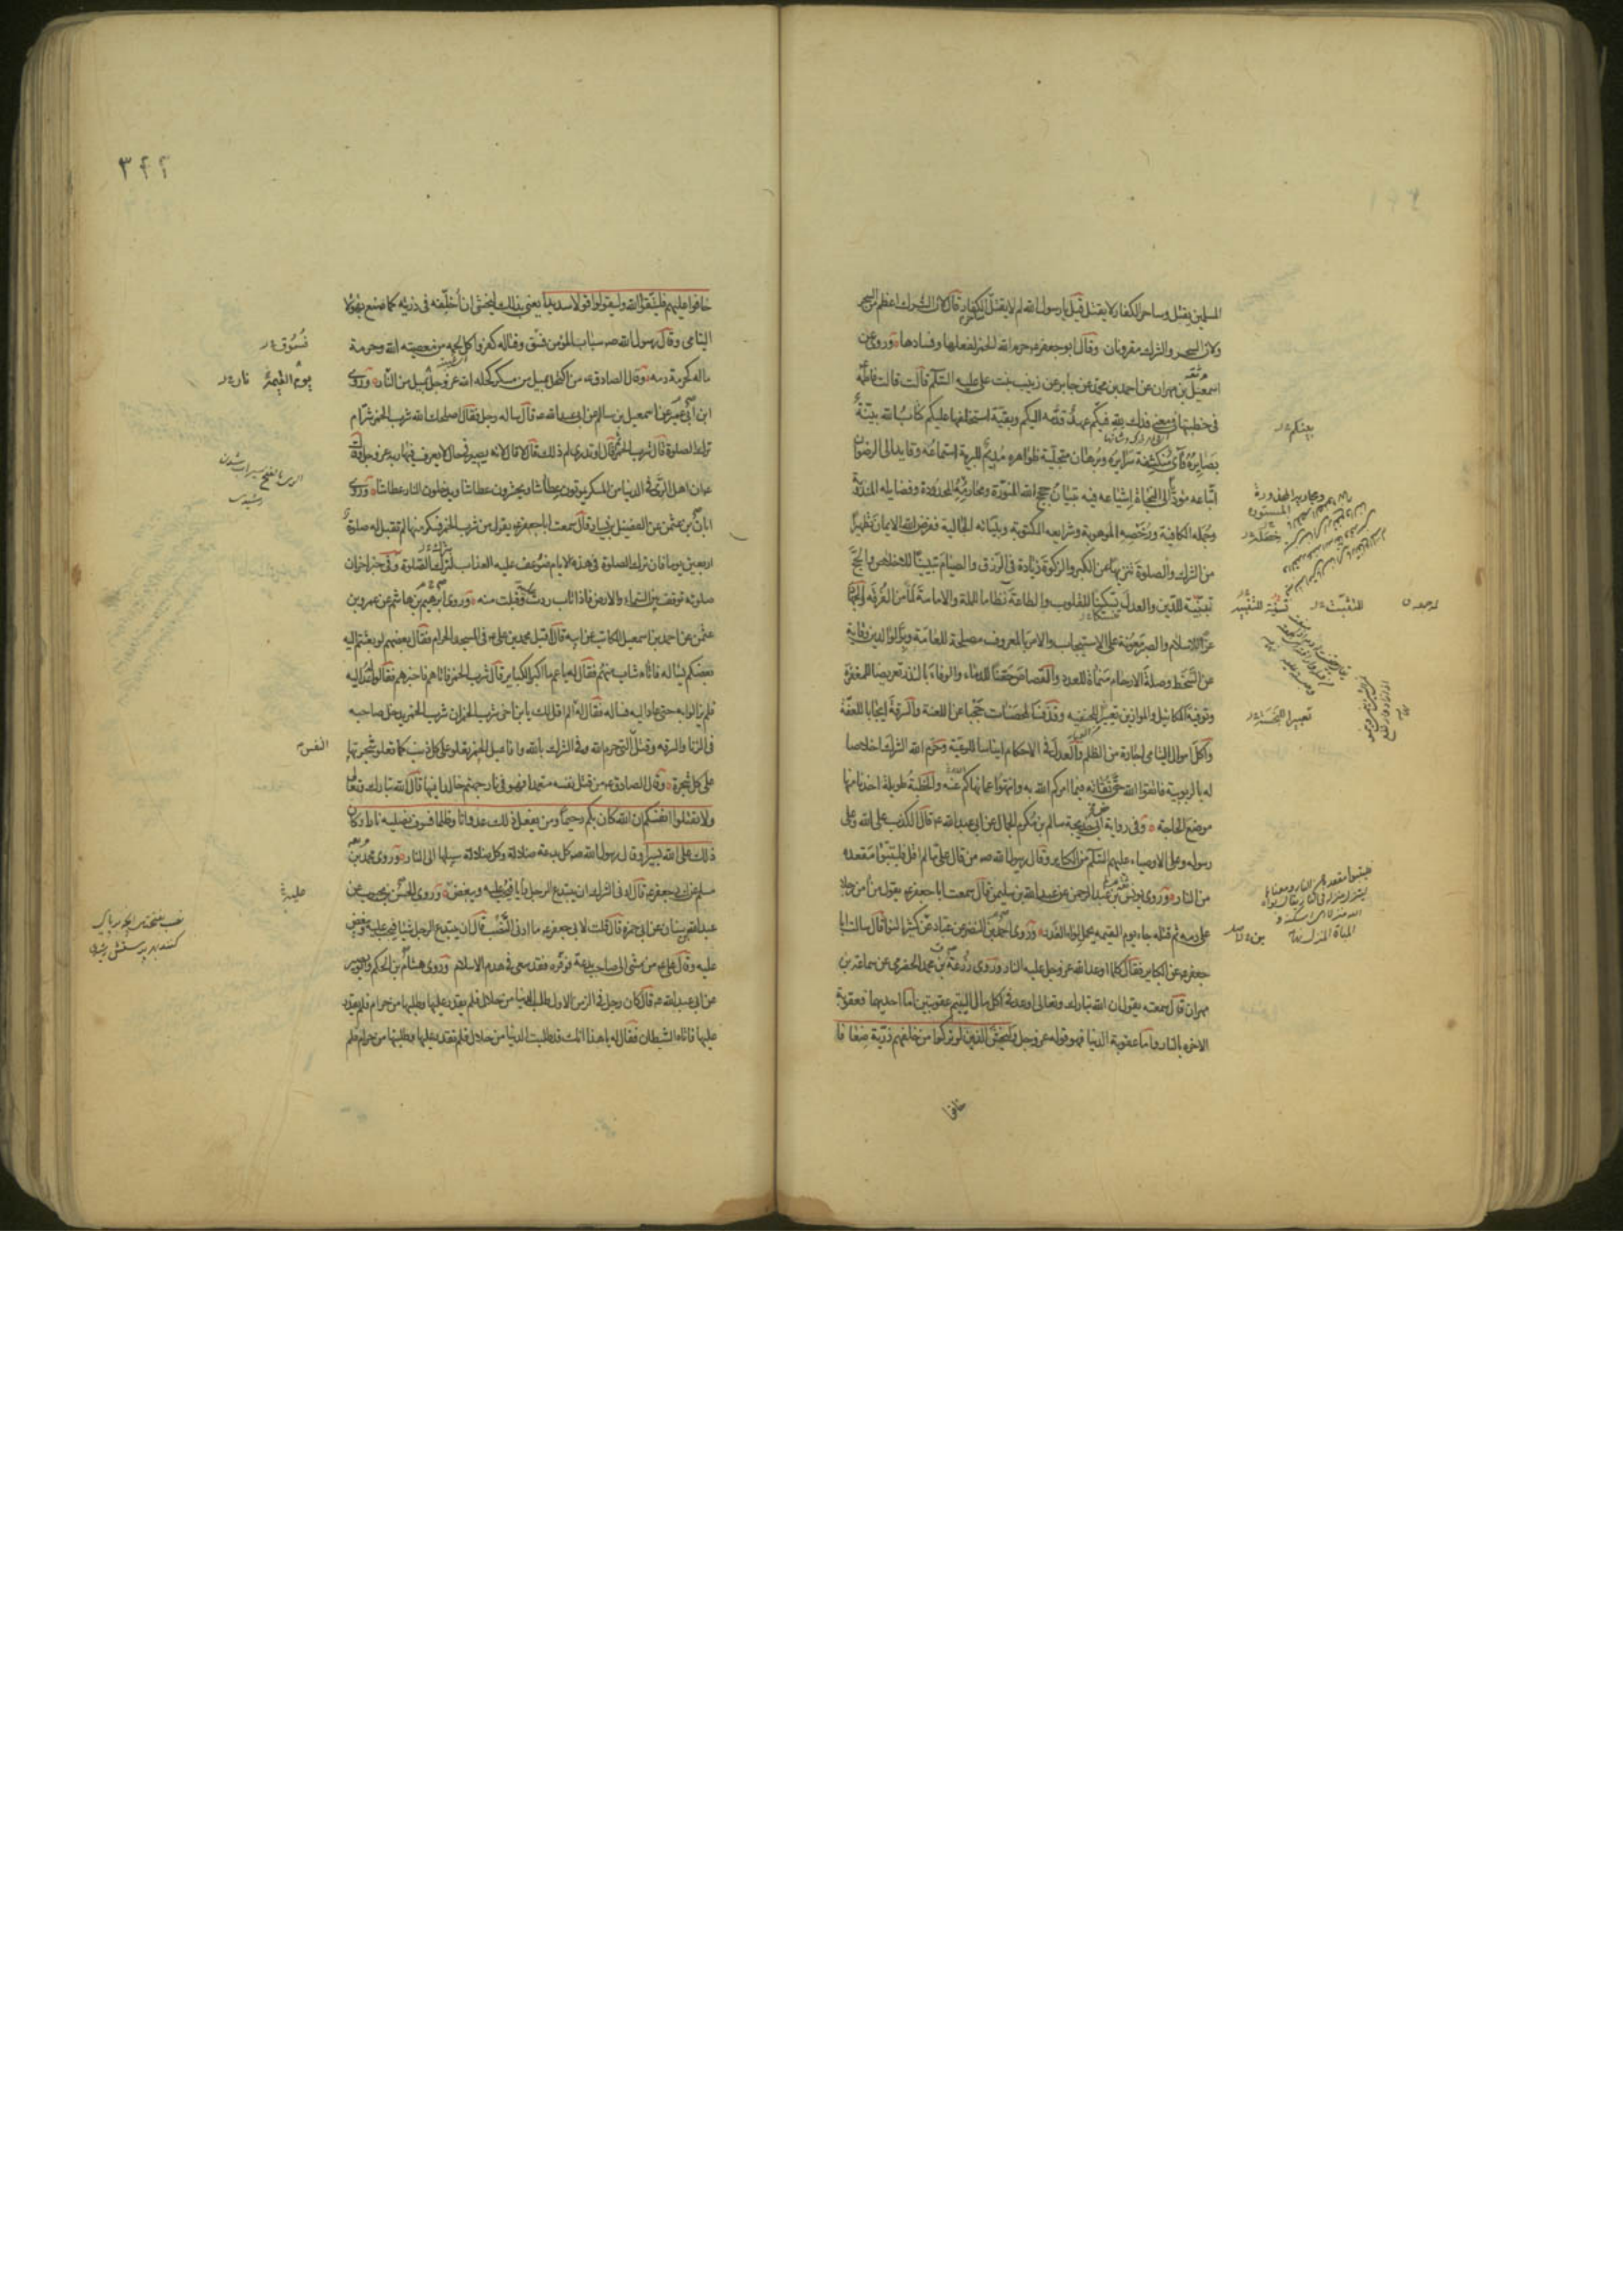 المسلمين يقتل وساحر الكفار لا يقتل قيل يا رسول الله لم لا يقتل ساحر الكفار قال لان الشرك اعظم من السحر
ولان السحر والشرك مقرونان وقال ابو جعفر ع حرم الله الخمر لفعلها وفسادها وروى عن
اسمعيل بن مهران عن احمد بن محمد عن جابر عن زينب بنت على عليه السلام قالت قالت فاطمة
فى خطبتها فى معنى فدك لله فيكم عهد قدمه اليكم وبقية استخلفها عليكم كتاب الله بينة
بصايره وآى منكشفة سرايره وبرهان متجلية ظواهره مديم للبرية استماعه وقايد الى الرضوان
اتباعه مؤديا الى النجاة اشياعه فيه تبيان حجج الله المنورة ومحارمه المحدودة وفضايله المندوبة
وجمله الكافية ورخصه الموهوبة وشرايعه المكتوبة وبيناته الخالية ففرض الله الايمان تطهيرا
من الشرك والصلوة تنزيها عن الكبر والزكوة زيادة فى الرزق والصيام تبيينا للاخلاص والحج
تسنية للدين والعدل تسكينا للقلوب والطاعة نظاما للملة والامامة لما من الفرقة والجهاد
عزا للاسلام والصبر معونة على الاستيجاب والامر بالمعروف مصلحة للعامة وبر الوالدين وقاية
عن السخط وصلة الارحام منماة للعدد والقصاص حقنا للدماء والوفاء بالنذر تعريضا للمغفرة
وتوفية المكائيل والموازين تعييرا للحنيفية وقذف المحصنات حجبا عن اللعنة والسرقة ايجابا للعفة
واكل اموال اليتامى اجارة من الظلم والعدل فى الاحكام ايناسا للرعية وحرم الله الشرك اخلاصا
له بالربوبية فاتقوا الله حق تقاته فيما امركم الله به وانتهوا عما نهاكم عنه والخطبة طويلة اخذنا منها
موضع الحاجة وفى رواية ابى خديجة سالم بن مكرم الجمال عن ابى عبد الله ع قال الكذب على الله وعلى
رسوله وعلى الاوصياء عليهم السلام من الكباير وقال رسول الله صه من قال على ما لم اقل فليتبوأ مقعده
من النار وروى يونس بن عبد الرحمن عن عبد الله بن سليمن قال سمعت ابا جعفر ع يقول من امن رجلا
على دمه ثم قتله جاء يوم القيمة يحمل لواء الغدر وروى احمد بن النضر عن عباد عن كثير النوا قال سالت ابا
جعفر ع عن الكباير فقال كلما اوعد الله عز وجل عليه النار وروى زرعة بن محمد الحضرمى عن سماعة بن
مهران قال سمعته يقول ان الله تبارك وتعالى اوعد فى اكل مال اليتيم عقوبتين اما احديهما فعقوبة
الاخرة بالنار واما عقوبة الدنيا فهو قوله عز وجل وليخش الذين لو تركوا من خلفهم ذرية ضعافا
خافوا
بينكم
خافوا عليهم فليتقوا الله وليقولوا قولا سديدا يعنى بذلك ليخش ان اخلفه فى ذريته كما صنع بهؤلاء
اليتامى وقال رسول الله صه سباب المؤمن فسق وقتاله كفر واكل لحمه من معصية الله وحرمة
ماله كحرمة دمه وقال الصادق ع من اكتحل بميل من مسكر كحله الله عز وجل بميل من النار وروى
ابن ابى عمير عن اسمعيل بن سالم عن ابى عبد الله ع قال ساله رجل فقال اصلحك الله شرب الخمر شر ام
ترك الصلوة قال شرب الخمر ثم قال او تدرى لم ذلك قال لا قال لانه يصير فى حال لا يعرف فيها ربه عز وجل وقال
ع ان اهل الرى فى الدنيا من المسكر يموتون عطاشا ويحشرون عطاشا ويدخلون النار عطاشا وروى
ابان بن عثمن عن الفضيل بن يسار قال سمعت ابا جعفر ع يقول من شرب الخمر فسكر منها لم تقبل له صلوة
اربعين يوما فان ترك الصلوة فى هذه الايام ضوعف عليه العذاب لترك الصلوة وفى خبر اخر ان
صلوته توقف بين السماء والارض فاذا تاب ردت وقبلت منه وروى ابرهيم بن هاشم عن عمرو بن
عثمن عن احمد بن اسمعيل الكاتب عن ابيه قال اقبل محمد بن على ع فى المسجد الحرام فقال بعضهم لو بعثتم اليه
بعضكم يساله فاتاه شاب منهم فقال له يا عم ما اكبر الكباير قال شرب الخمر فاتاهم فاخبرهم فقالوا له عد اليه
فلم يزالوا به حتى عاد اليه فساله فقال له الم اقل لك يا بن اخى شرب الخمر ان شرب الخمر يدخل صاحبه
فى الزنا والسرقة وقتل التى حرم الله وفى الشرك بالله وافاعيل الخمر تعلو على كل ذنب كما تعلو شجرتها
على كل شجرة وقال الصادق ع من قتل نفسه متعمدا فهو فى نار جهنم خالدا فيها قال الله تبارك وتعالى
ولا تقتلوا انفسكم ان الله كان بكم رحيما ومن يفعل ذلك عدوانا وظلما فسوف نصليه نارا وكان
ذلك على الله يسيرا وقال رسول الله صه كل بدعة ضلالة وكل ضلالة سبيلها الى النار وروى محمد بن
مسلم عن ابى جعفر ع قال ادنى الشرك ان يبتدع الرجل رايا فيحب عليه ويبغض وروى الحسن بن محبوب عن
عبد الله بن سنان عن ابى حمزة قال قلت لابى جعفر ع ما ادنى النصب قال ان يبتدع الرجل شيئا فيحب عليه ويبغض
عليه وقال على ع من مشى الى صاحب بدعة فوقره فقد سعى فى هدم الاسلام وروى هشام بن الحكم وابو بصير
عن ابى عبد الله ع قال كان رجل فى الزمن الاول طلب الدنيا من حلال فلم يقدر عليها وطلبها من حرام فلم يقدر
عليها فاتاه الشيطان فقال له يا هذا انك قد طلبت الدنيا من حلال فلم تقدر عليها وطلبتها من حرام فلم
فسوق
يوم القيمة نار
النفس
عليه